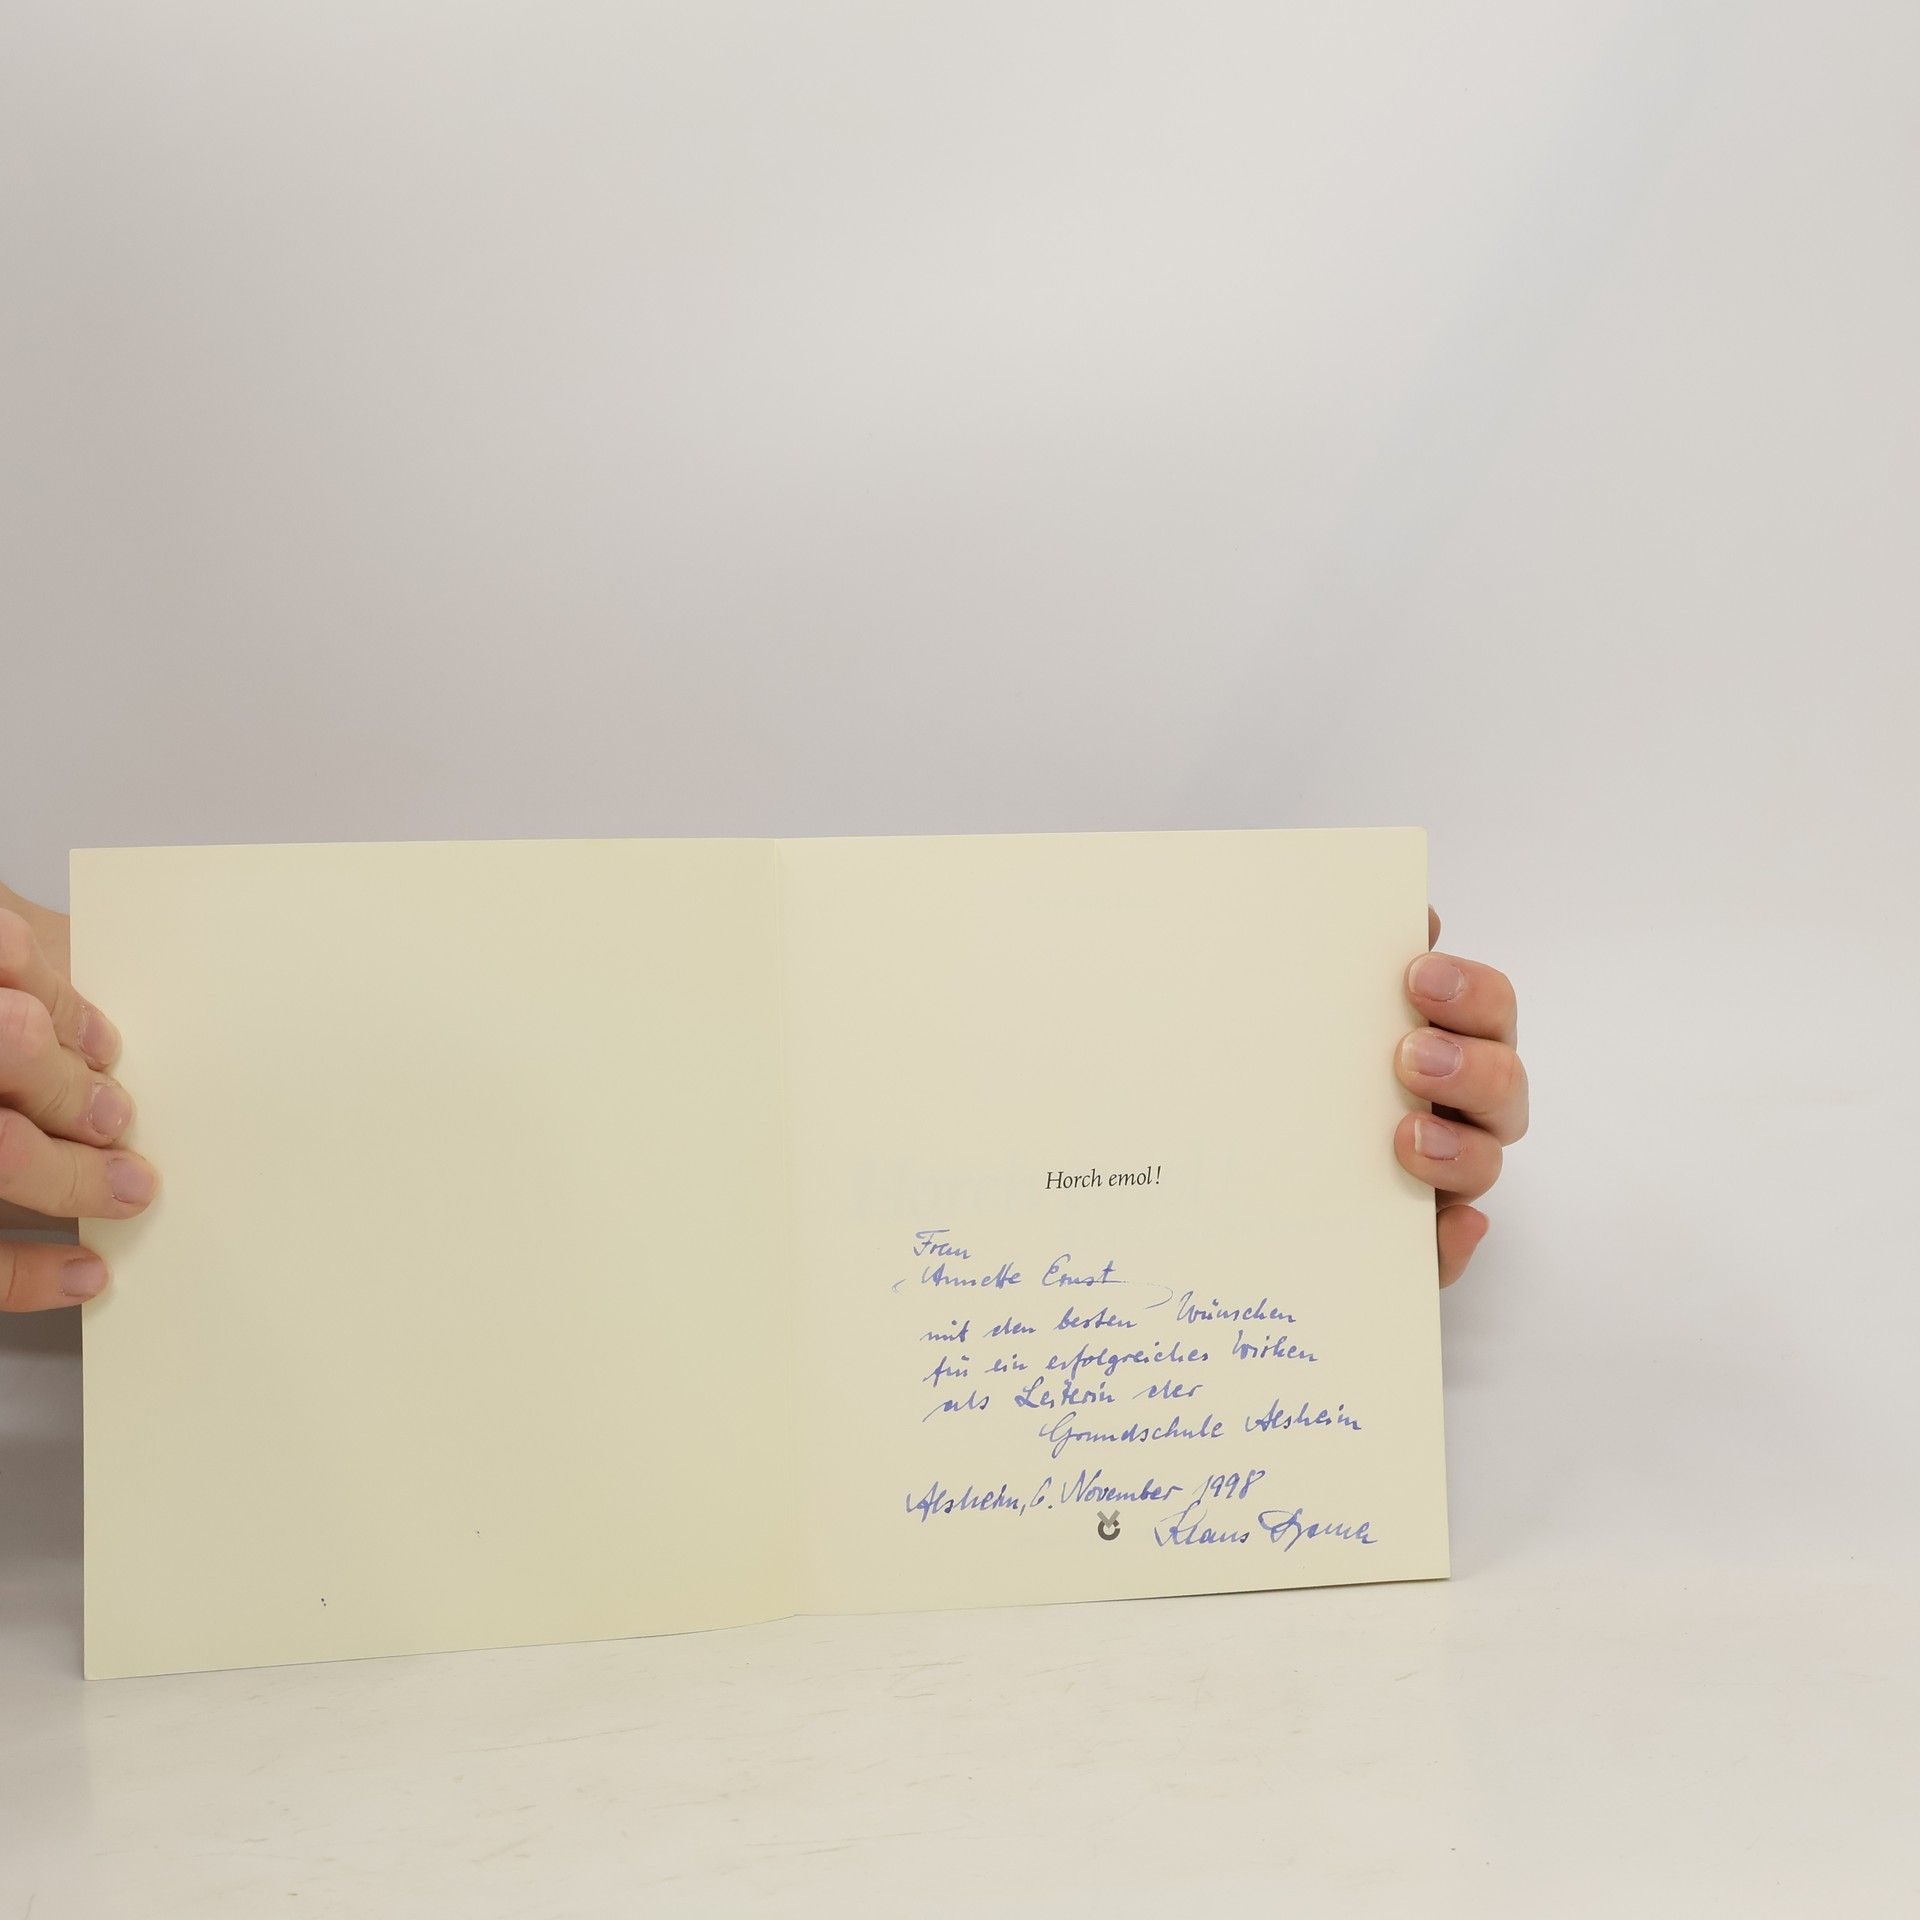 Horch emol!
Frau
Annette Ernst
mit den besten Wünschen
für ein erfolgreiches Wirken
als Leiterin der
Grundschule Alsheim
Alsheim, 6. November 1998
Klaus